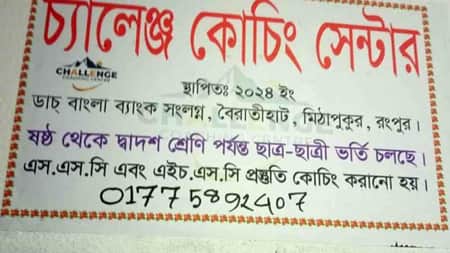 চ্যালেঞ্জ কোচিং সেন্টার
CHALLENGE
স্থাপিতঃ ২০২৪ ইং
ডাচ্ বাংলা ব্যাংক সংলগ্ন, বৈরাতীহাট, মিঠাপুকুর, রংপুর।
ষষ্ঠ থেকে দ্বাদশ শ্রেণি পর্যন্ত ছাত্র-ছাত্রী ভর্তি চলছে।
এস.এস.সি এবং এইচ.এস.সি প্রস্তুতি কোচিং করানো হয়।
01775892407